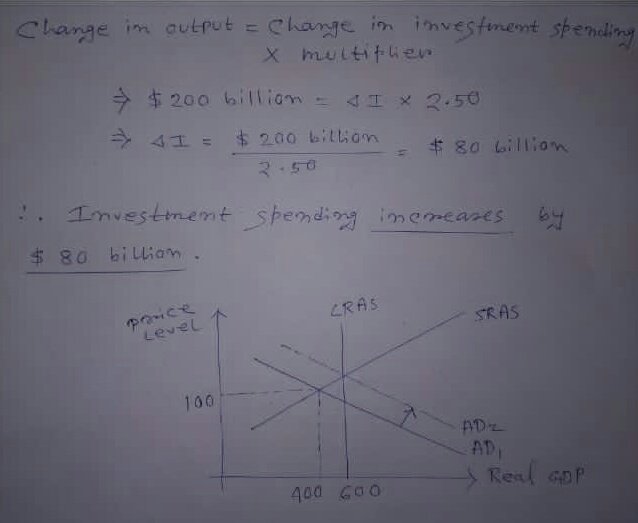 Change in output = Change in investment spending
× multiplier
⇒ $ 200 billion = ΔI × 2.50
⇒ ΔI = $ 200 billion / 2.50 = $ 80 billion
∴ Investment spending increases by
$ 80 billion.
Price Level
LRAS
SRAS
100
AD2
AD1
Real GDP
400 600